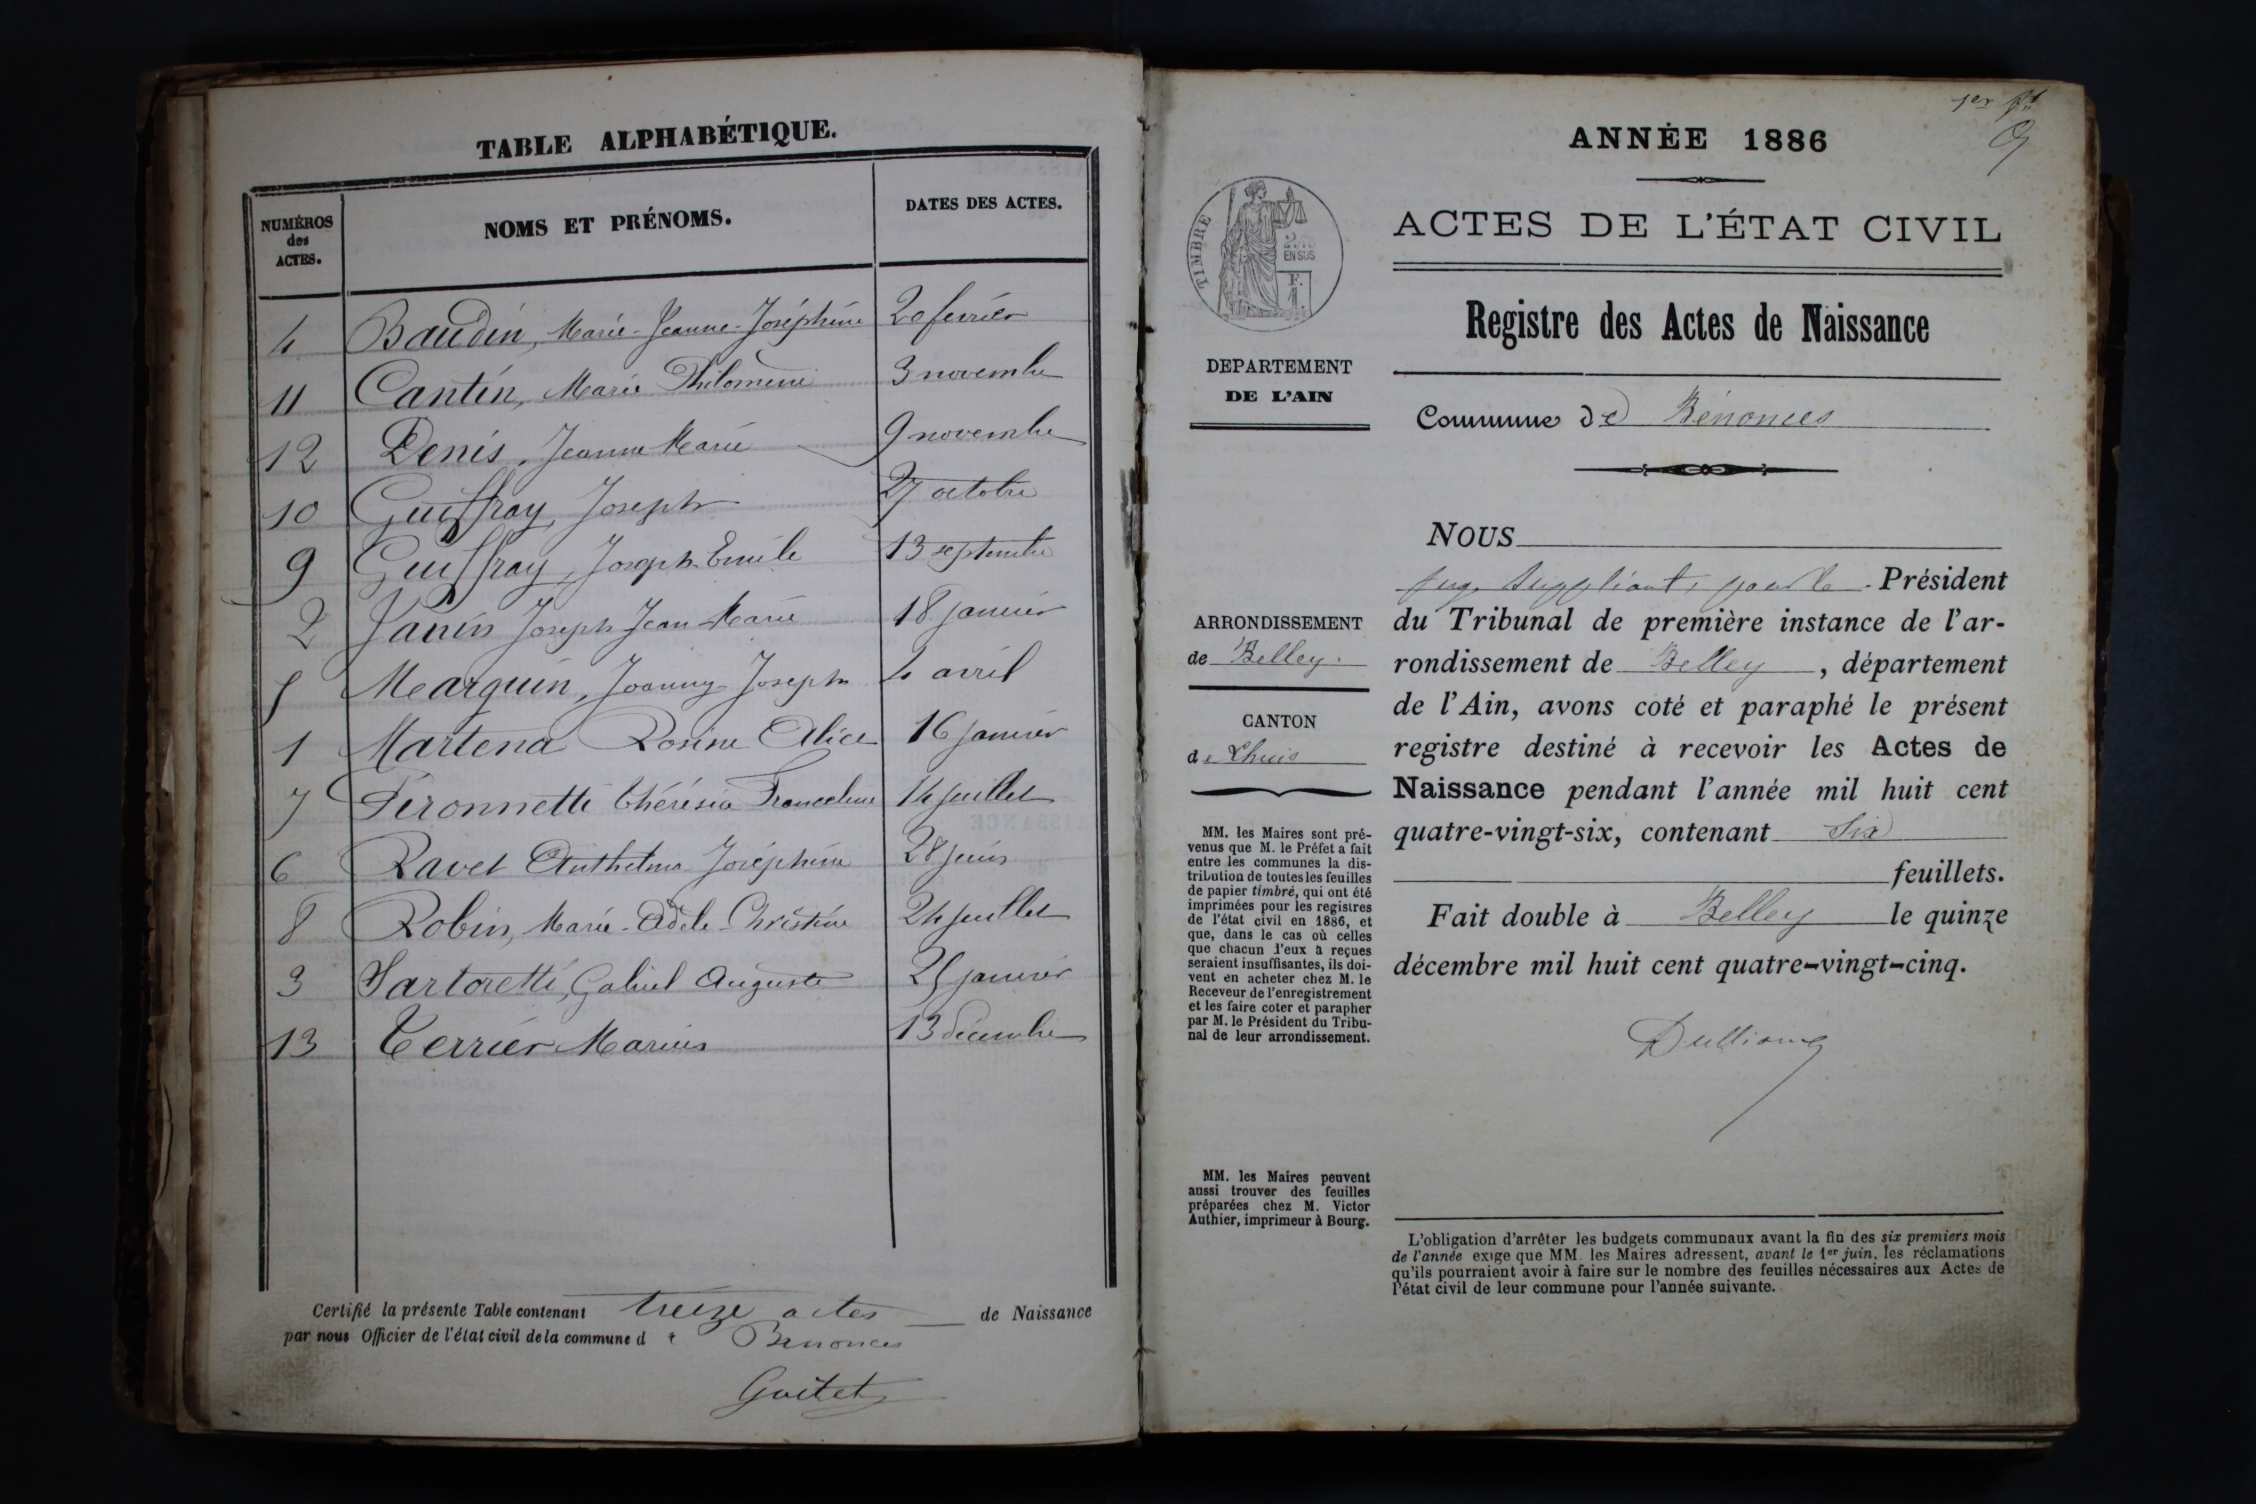 TABLE ALPHABÉTIQUE.
NUMÉROS
des
ACTES.
NOMS ET PRÉNOMS.
DATES DES ACTES.
4 Baudin, Marie-Jeanne-Joséphine 20 février
11 Cantin, Marie Philomène 3 novembre
12 Denis, Jeanne Marie 9 novembre
10 Guiffray Joseph 27 octobre
9 Guiffray, Joseph Emile 13 septembre
2 Janin Joseph Jean Marie 18 janvier
5 Mearguin, Joanny Joseph 4 avril
1 Martena Rosine Alice 16 janvier
7 Péronnetti Thérésia Franceline 14 juillet
6 Ravet Anthelma Joséphine 28 juin
8 Robin, Marie-Adèle-Christine 24 juillet
3 Sartoretti, Gabriel Auguste 25 janvier
13 Terrier Marius 13 décembre
Certifié la présente Table contenant treize actes de Naissance
par nous Officier de l'état civil de la commune d e Bénonces
Goitet
1er
ANNÉE 1886
TIMBRE
2/10
EN SUS
F.
1.
ACTES DE L'ÉTAT CIVIL
Registre des Actes de Naissance
DEPARTEMENT
DE L'AIN
Commune de Bénonces
NOUS
Juge suppléant, pour le Président
du Tribunal de première instance de l'ar-
rondissement de Belley, département
de l'Ain, avons coté et paraphé le présent
registre destiné à recevoir les Actes de
Naissance pendant l'année mil huit cent
quatre-vingt-six, contenant Six
feuillets.
Fait double à Belley le quinze
décembre mil huit cent quatre-vingt-cinq.
ARRONDISSEMENT
de Belley.
CANTON
de Lhuis
MM. les Maires sont pré-
venus que M. le Préfet a fait
entre les communes la dis-
tribution de toutes les feuilles
de papier timbré, qui ont été
imprimées pour les registres
de l'état civil en 1886, et
que, dans le cas où celles
que chacun d'eux a reçues
seraient insuffisantes, ils doi-
vent en acheter chez M. le
Receveur de l'enregistrement
et les faire coter et parapher
par M. le Président du Tribu-
nal de leur arrondissement.
MM. les Maires peuvent
aussi trouver des feuilles
préparées chez M. Victor
Authier, imprimeur à Bourg.
L'obligation d'arrêter les budgets communaux avant la fin des six premiers mois
de l'année exige que MM. les Maires adressent, avant le 1er juin, les réclamations
qu'ils pourraient avoir à faire sur le nombre des feuilles nécessaires aux Actes de
l'état civil de leur commune pour l'année suivante.